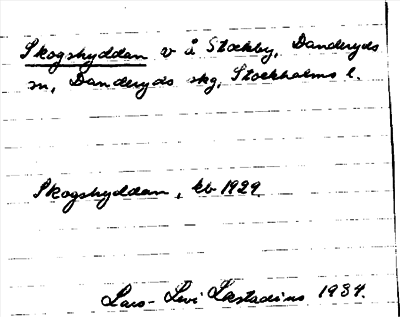 Skogshyddan v å Stockby, Danderyds
sn, Danderyds skg, Stockholms l.
Skogshyddan, kb 1929.
Lars-Levi Læstadius 1934.